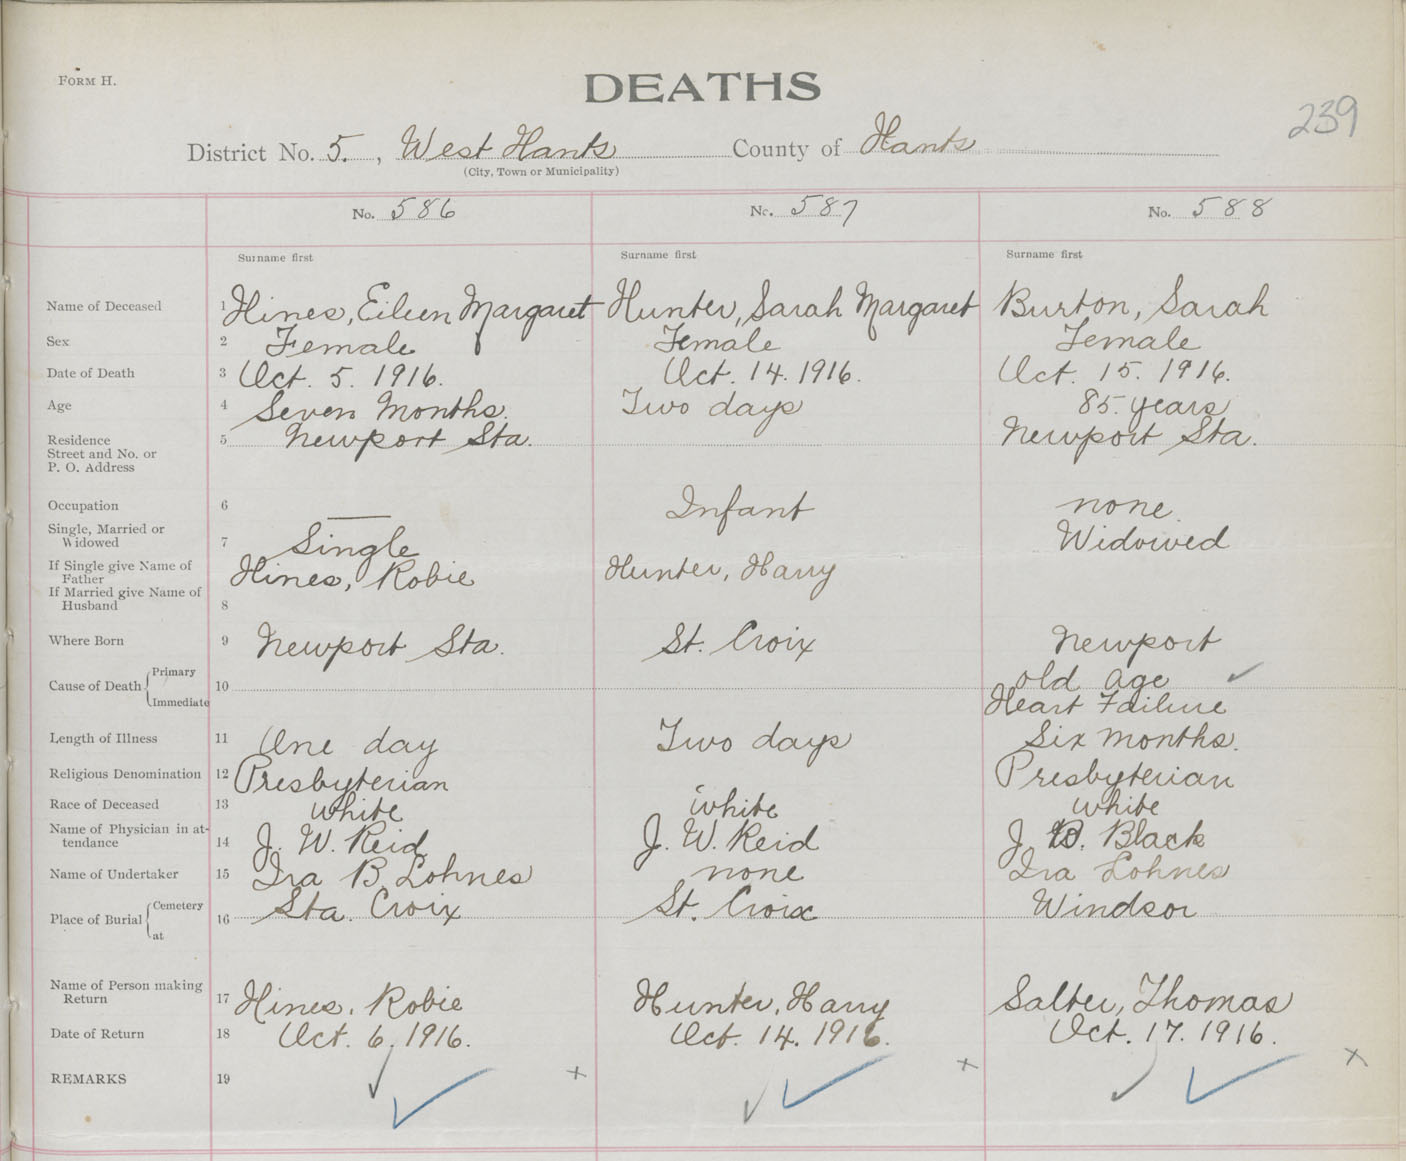 Form H.
DEATHS
239
District No. 5. , West Hants County of Hants
(City, Town or Municipality)
No. 586 No. 587 No. 588
Surname first Surname first Surname first
Name of Deceased 1 Hines, Eileen Margaret Hunter, Sarah Margaret Burton, Sarah
Sex 2 Female Female Female
Date of Death 3 Oct. 5. 1916. Oct. 14. 1916. Oct. 15. 1916.
Age 4 Seven Months. Two days 85 years
Residence 5 Newport Sta. Newport Sta.
Street and No. or
P. O. Address
Occupation 6 Infant none.
Single, Married or
Widowed 7 Single Widowed
If Single give Name of
Father Hines, Robie Hunter, Harry
If Married give Name of
Husband 8
Where Born 9 Newport Sta. St. Croix Newport
Cause of Death Primary 10 old age
Immediate Heart Failure
Length of Illness 11 One day Two days Six months.
Religious Denomination 12 Presbyterian Presbyterian
Race of Deceased 13 white white white
Name of Physician in at-
tendance 14 J. W. Reid J. W. Reid J. B. Black
Name of Undertaker 15 Ira B. Lohnes none Ira Lohnes
Place of Burial Cemetery 16 Sta. Croix St. Croix Windsor
at
Name of Person making
Return 17 Hines, Robie Hunter, Harry Salter, Thomas
Date of Return 18 Oct. 6, 1916. Oct. 14. 1916. Oct. 17. 1916.
REMARKS 19